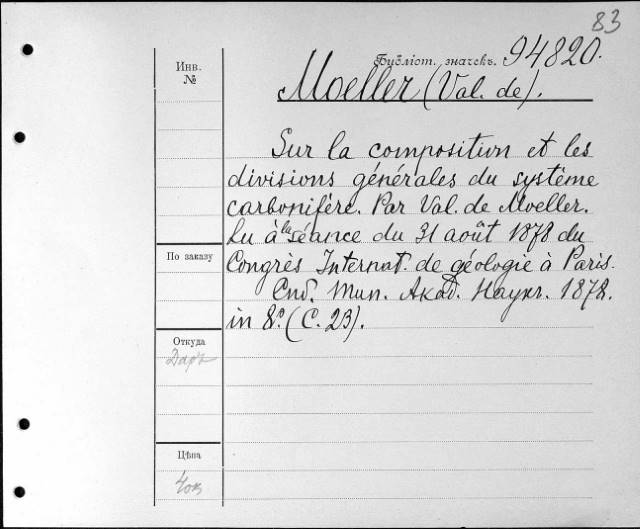 83
Инв.
№
Бубліот. значекъ. 94820.
Moeller (Val. de).
Sur la composition et les
divisions générales du système
carbonifère. Par Val. de Moeller.
Lu à la séance du 31 août 1878 du
Congrès Internat. de géologie à Paris.
Спб. Тип. Акад. Наукъ. 1878.
in 8º. (С. 23).
По заказу
Откуда
Даръ
Цѣна
40к